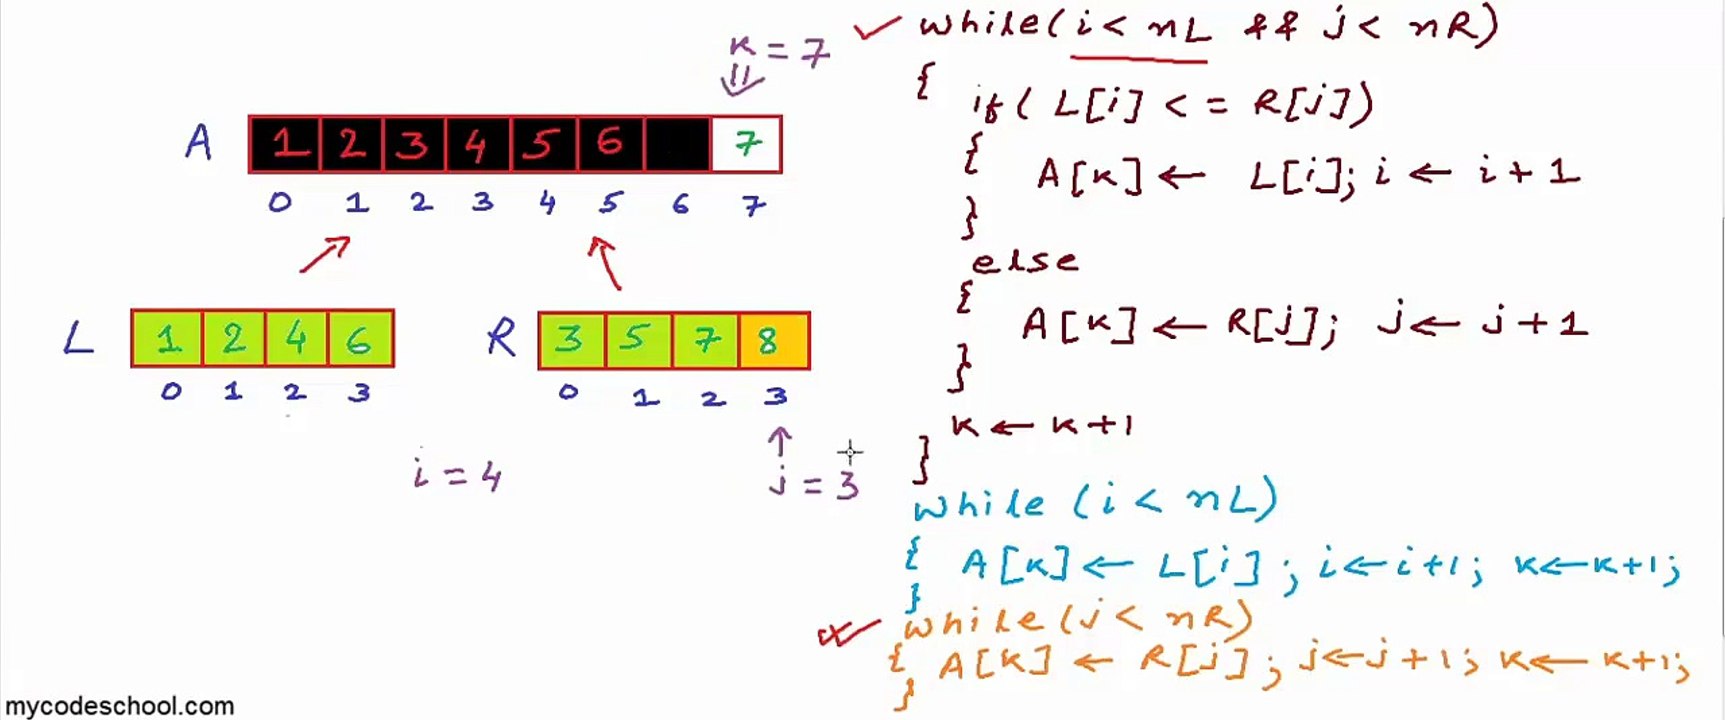 K = 7
A 1 2 3 4 5 6 7
0 1 2 3 4 5 6 7
L 1 2 4 6
0 1 2 3
R 3 5 7 8
0 1 2 3
i = 4
j = 3
while(i < nL && j < nR)
{
if( L[i] <= R[j])
{
A[K] ← L[i]; i ← i+1
}
else
{
A[K] ← R[j]; j ← j+1
}
K ← K+1
}
while (i < nL)
{ A[K] ← L[i] ; i ← i+1; K ← K+1;
}
while (j < nR)
{ A[K] ← R[j] ; j ← j+1; K ← K+1;
}
mycodeschool.com